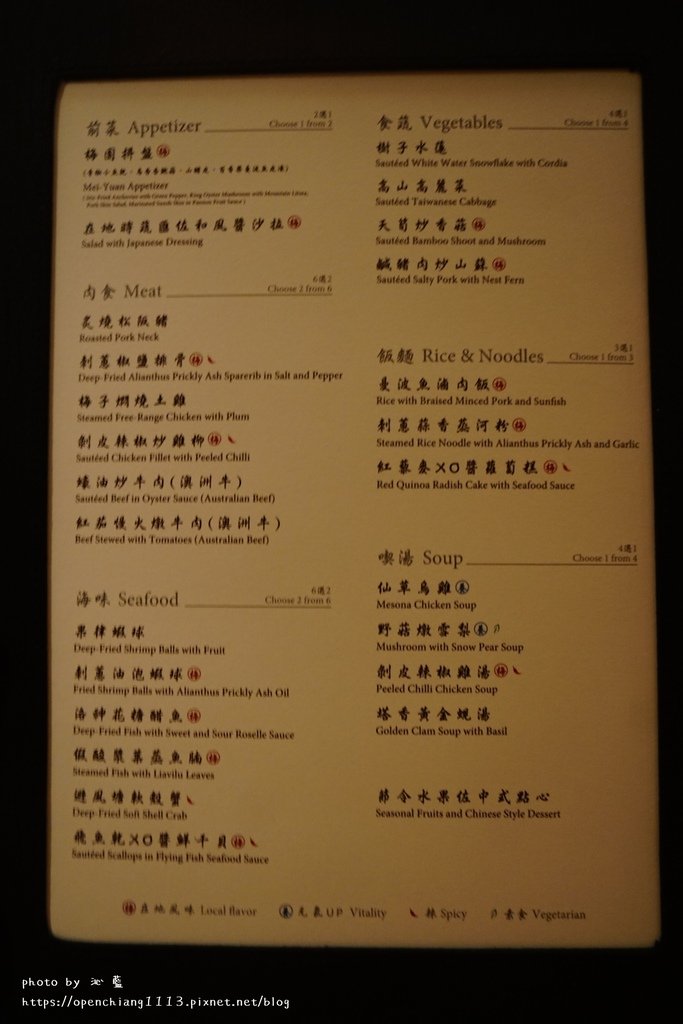 前菜 Appetizer
2選1
Choose 1 from 2
梅園拼盤
Mei-Yuan Appetizer
在地時蔬溫佐和風醬沙拉
Salad with Japanese Dressing
肉食 Meat
6選2
Choose 2 from 6
炙燒松阪豬
Roasted Pork Neck
刺蔥椒鹽排骨
Deep-Fried Alianthus Prickly Ash Sparerib in Salt and Pepper
梅子燜燒土雞
Steamed Free-Range Chicken with Plum
剝皮辣椒炒雞柳
Sautéed Chicken Fillet with Peeled Chilli
蠔油炒牛肉(澳洲牛)
Sautéed Beef in Oyster Sauce (Australian Beef)
紅茄慢火燉牛肉(澳洲牛)
Beef Stewed with Tomatoes (Australian Beef)
海味 Seafood
6選2
Choose 2 from 6
果律蝦球
Deep-Fried Shrimp Balls with Fruit
刺蔥油泡蝦球
Fried Shrimp Balls with Alianthus Prickly Ash Oil
洛神花糖醋魚
Deep-Fried Fish with Sweet and Sour Roselle Sauce
假酸漿葉蒸魚腩
Steamed Fish with Liavilu Leaves
避風塘軟殼蟹
Deep-Fried Soft Shell Crab
飛魚乾XO醬鮮干貝
Sautéed Scallops in Flying Fish Seafood Sauce
食蔬 Vegetables
Choose 1 from 4
樹子水蓮
Sautéed White Water Snowflake with Cordia
高山高麗菜
Sautéed Taiwanese Cabbage
天筍炒香菇
Sautéed Bamboo Shoot and Mushroom
鹹豬肉炒山蘇
Sautéed Salty Pork with Nest Fern
飯麵 Rice & Noodles
3選1
Choose 1 from 3
曼波魚滷肉飯
Rice with Braised Minced Pork and Sunfish
刺蔥蒜香蒸河粉
Steamed Rice Noodle with Alianthus Prickly Ash and Garlic
紅藜麥XO醬蘿蔔糕
Red Quinoa Radish Cake with Seafood Sauce
喫湯 Soup
4選1
Choose 1 from 4
仙草烏雞
Mesona Chicken Soup
野菇燉雪梨
Mushroom with Snow Pear Soup
剝皮辣椒雞湯
Peeled Chilli Chicken Soup
塔香黃金蜆湯
Golden Clam Soup with Basil
節令水果佐中式點心
Seasonal Fruits and Chinese Style Dessert
在地風味 Local flavor 元氣UP Vitality 辣 Spicy 素食 Vegetarian
photo by 沁藍
https://openchiang1113.pixnet.net/blog